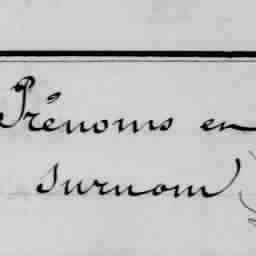 Prénoms en
surnom